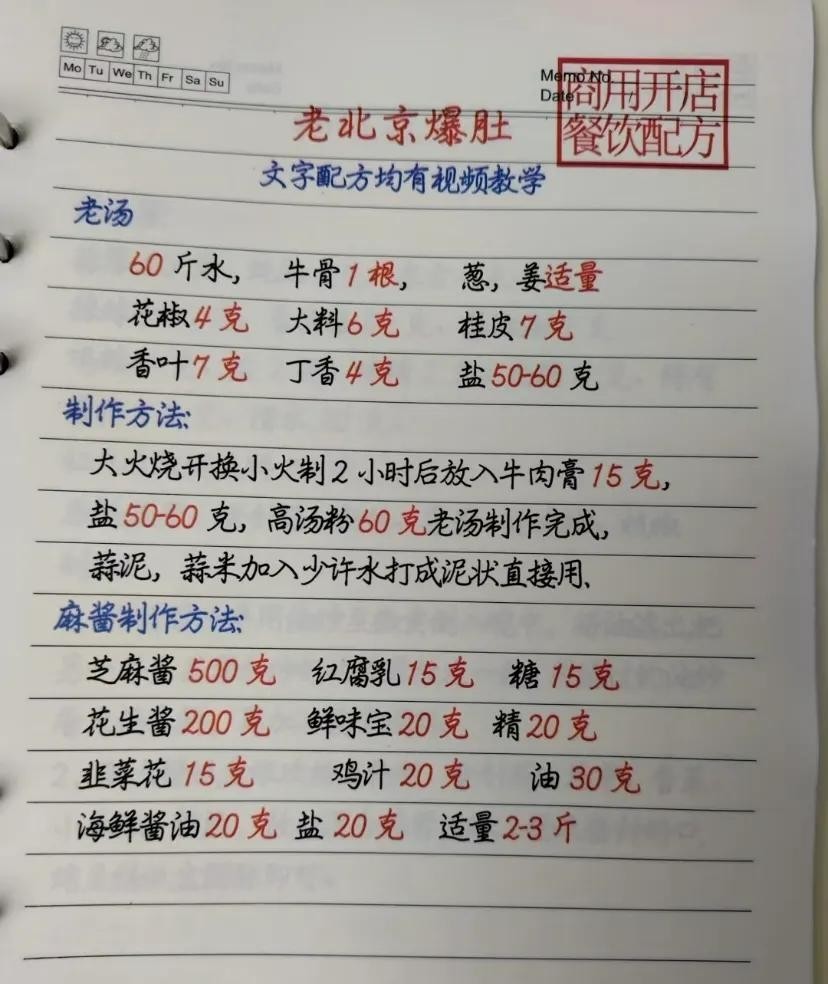 Mo Tu We Th Fr Sa Su
Memo No.
Date
商用开店
餐饮配方
老北京爆肚
文字配方均有视频教学
老汤
60斤水， 牛骨1根， 葱，姜适量
花椒4克 大料6克 桂皮7克
香叶7克 丁香4克 盐50-60克
制作方法:
大火烧开换小火制2小时后放入牛肉膏15克，
盐50-60克，高汤粉60克老汤制作完成，
蒜泥，蒜米加入少许水打成泥状直接用、
麻酱制作方法:
芝麻酱500克 红腐乳15克 糖15克
花生酱200克 鲜味宝20克 精20克
韭菜花15克 鸡汁20克 油30克
海鲜酱油20克 盐20克 适量2-3斤